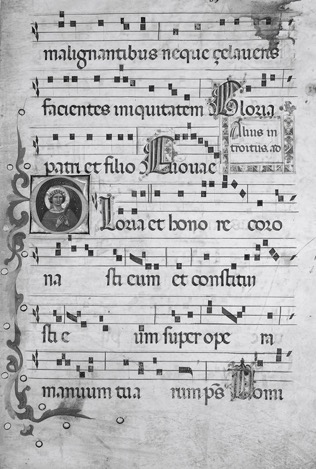 malignantibus neque zelaveris
facientes iniquitatem Gloria
Alius in
troitus ad
patri et filio Euouae
Gloria et hono re coro
na sti eum et constitui
sti e um super ope ra
manuum tua rum ps Domi